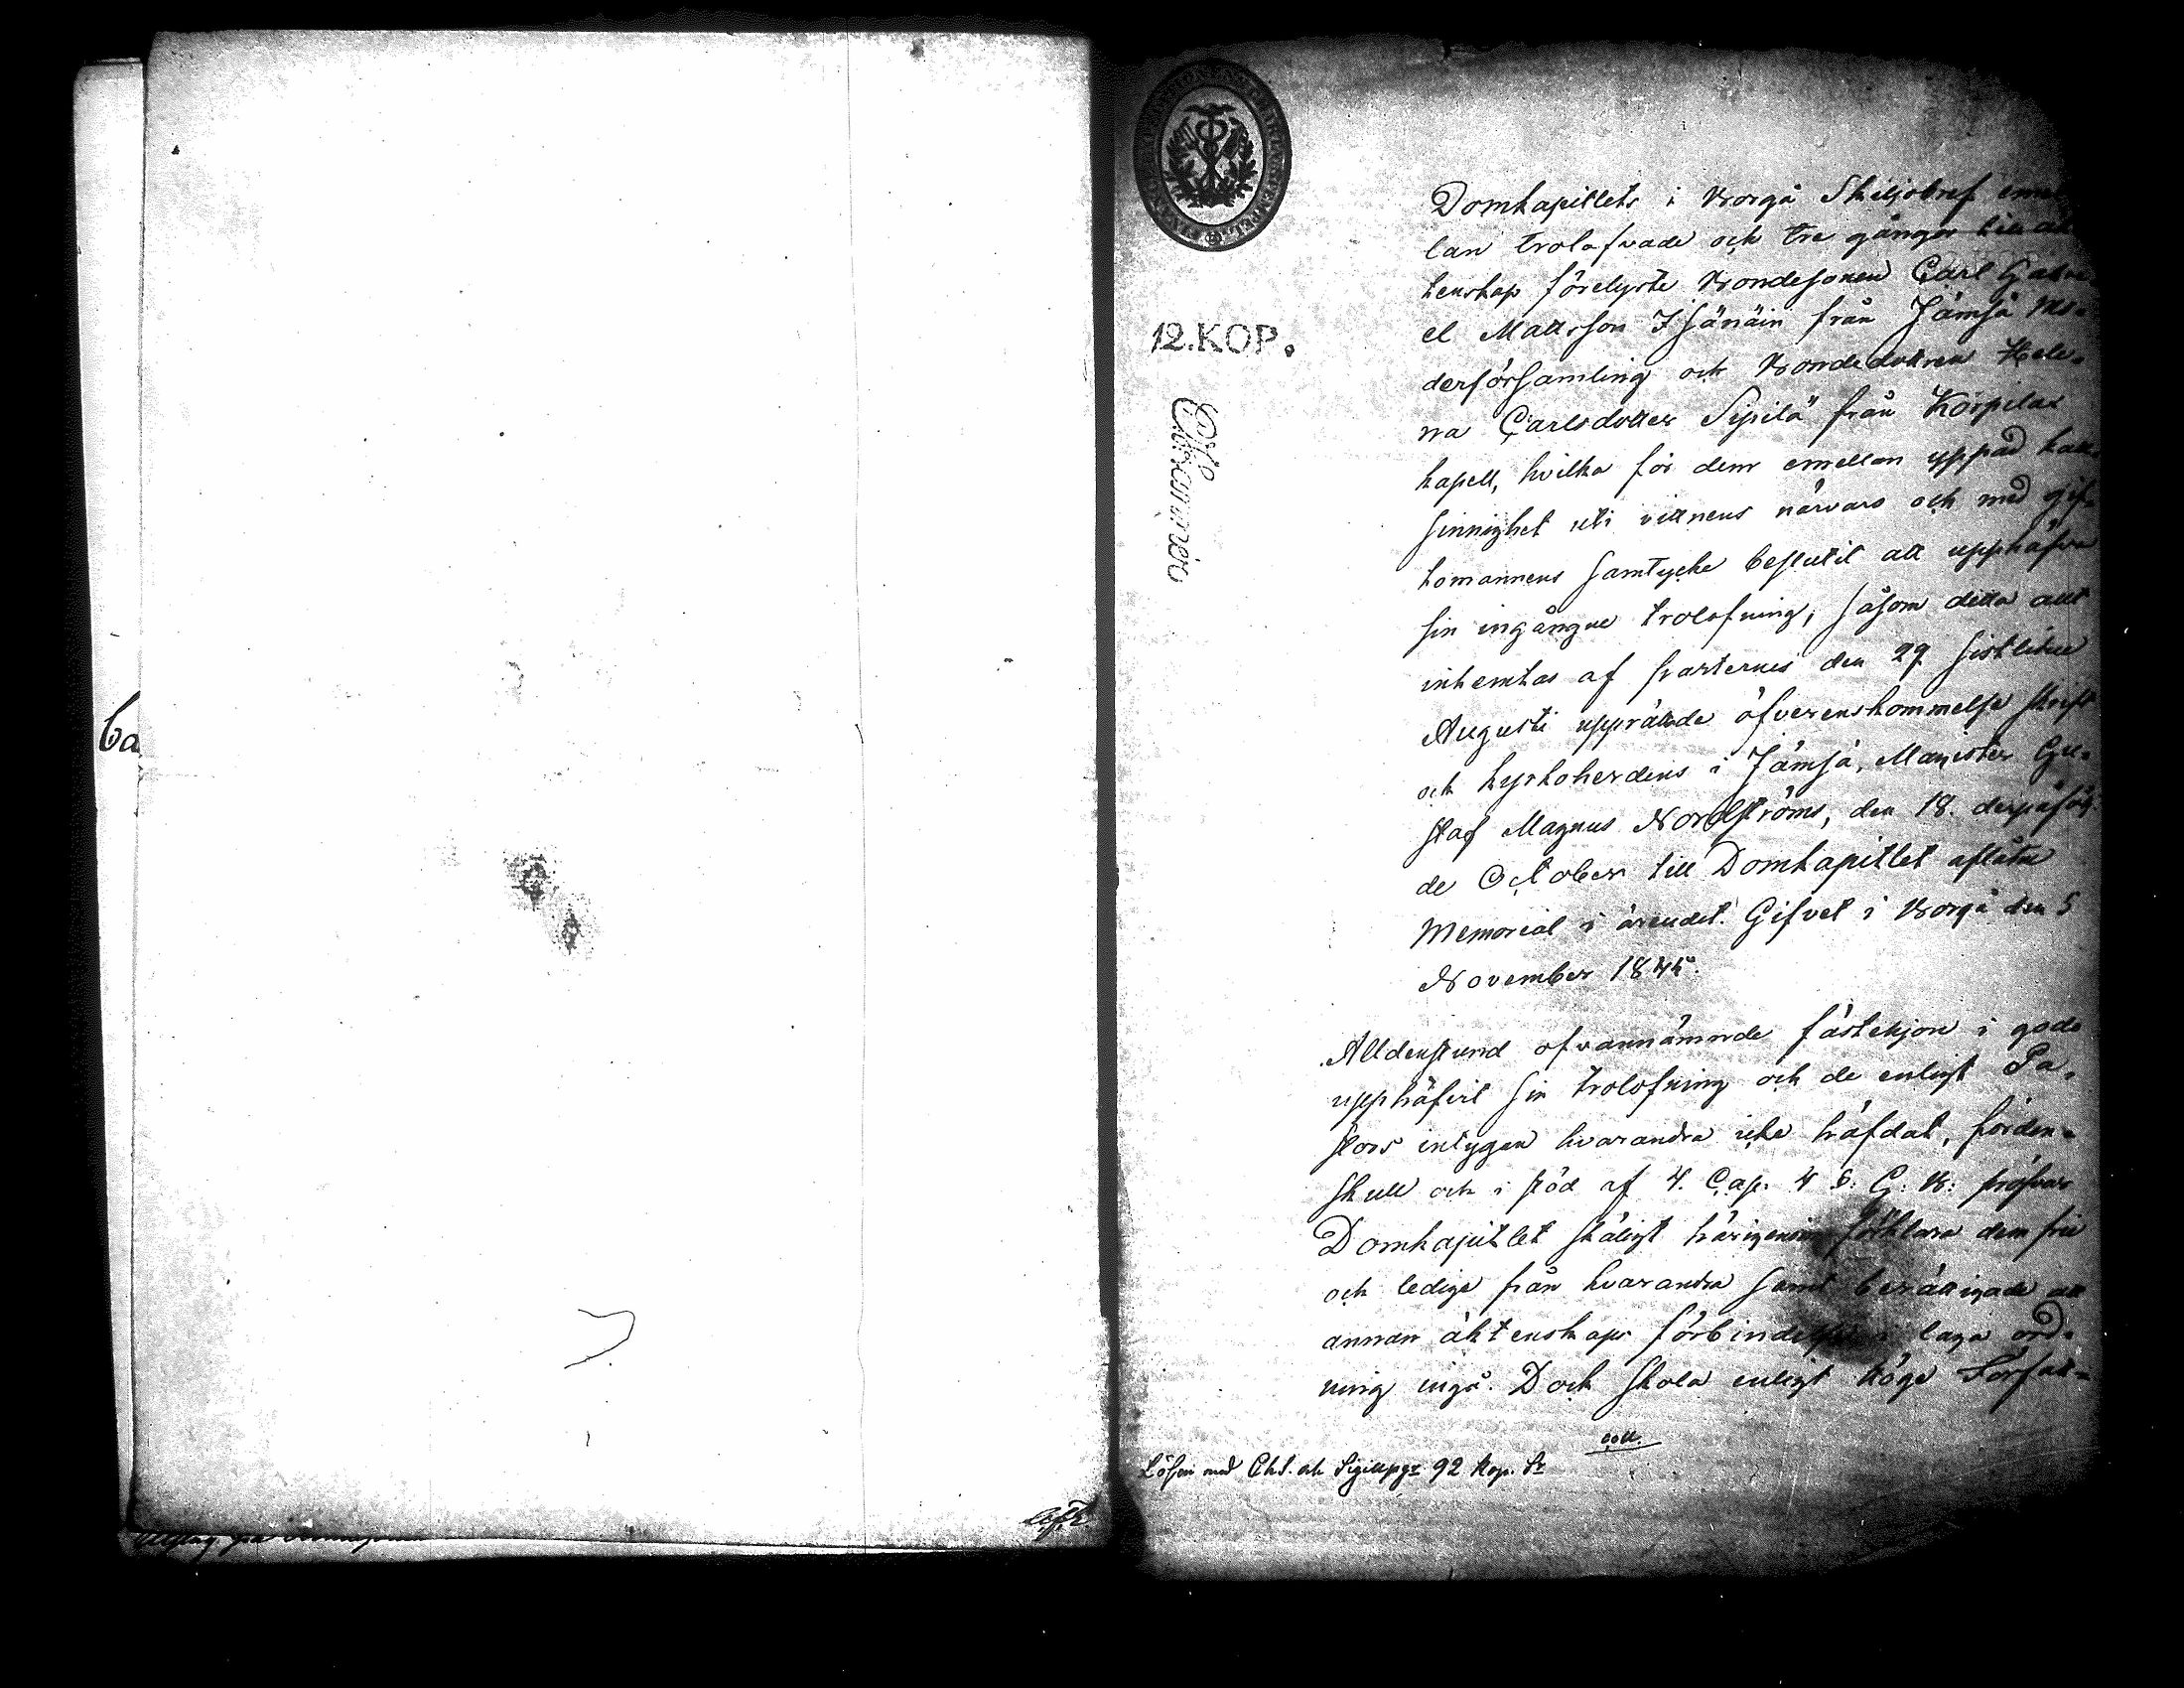 Ca
12.KOP.
Domkapitlets i Borgå Skiljobref emel
lan trolofvade och tre gånger till äk
tenskap förelyste Bondesonen Carl Gabri
el Mattsson Isänäin från Jämsä Mo-
derförsamling och Bondedottren Hele-
na Carlsdotter Sipilä från Korpilax
kapell, hvilka för dem emellan yppad kall-
sinnighet uti vittnens närvaro och med gif-
tomannens samtycke beslutit att upphäfva
sin ingångne trolofning, såsom detta allt
inhemtas af parternes den 29 sistlidne
Augusti upprättade öfverenskommelse skrift
och kyrkoherdens i Jämsä, Magister Gu-
staf Magnus Nordströms, den 18. derpåföl-
de October till Domkapitlet aflåtne
Memorial i ärendet. Gifvet i Borgå den 5
November 1845.
Alldenstund ofvannämnde fästehjon i godo
upphäfvit sin trolofning och de enligt Pa-
stors intygan hvarandra icke häfdat, förden-
skull och i stöd af 4. Cap. 4 §. G: B: pröfvar
Domkapitlet skäligt härigenom förklara dem fria
och ledige från hvarandra samt berättigade att
annan äktenskaps förbindelse i laga ord-
ning ingå. Dock skola enligt Höge Författ-
coll.
Lösen med Ch. S. och Sigillpgr 92 Kop. Sr